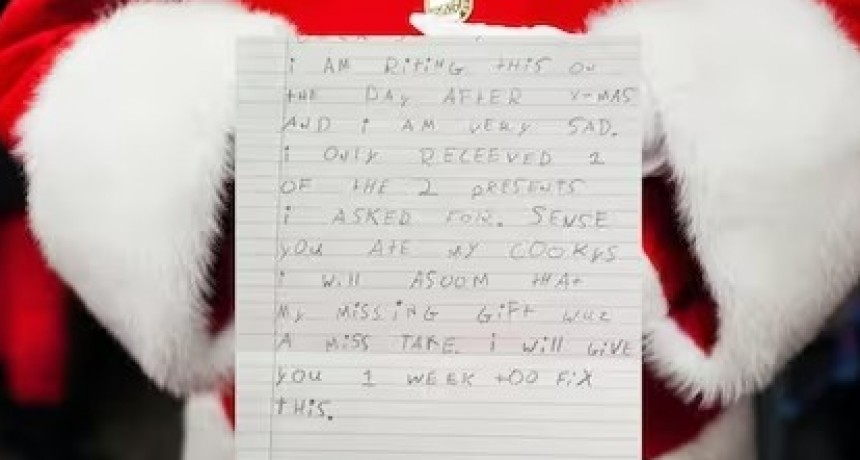 i AM RiTiNG tHiS ON
tHE DAy AFtER X-MAS
AND i AM VERy SAD.
i ONly RECEEVED 2
OF tHE 2 PRESENtS
i ASKED FOR. SENSE
yOU AtE My COOKyS
i Will ASOOM tHAt
My MiSSiNG GiFt WUZ
A MiSS TAKE. i Will GiVE
yOU 1 WEEK tOO FiX
tHiS.